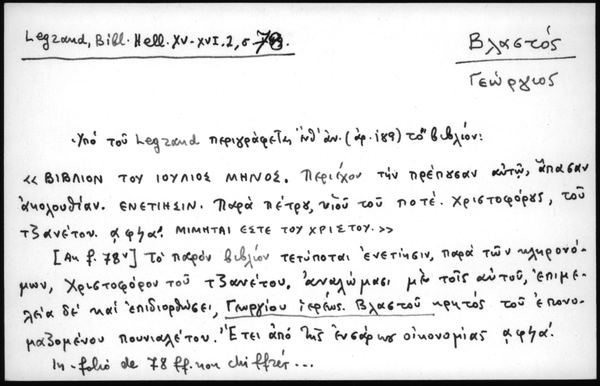 Legrand, Bibl. Hell. XV-XVI. 2, σ 78.
Βλαστός
Γεώργιος
Ὑπό τοῦ Legrand περιγράφεται (ἀρ. 189) τό βιβλίον:
«ΒΙΒΛΙΟΝ ΤΟΥ ΙΟΥΛΙΟΣ ΜΗΝΟΣ. Περιέχον τήν πρέπουσαν αὐτῶ, ἅπασαν
ἀκολουθίαν. ΕΝΕΤΙΗΣΙΝ. Παρά πέτρου, υἱοῦ τοῦ ποτέ. Χριστοφόρου, τοῦ
τζανέτου. αφξα. ΜΙΜΗΤΑΙ ΕΣΤΕ ΤΟΥ ΧΡΙΣΤΟΥ.»
[Au f. 78ᵛ] Τό παρόν βιβλίον τετύποται ἐνετίησιν, παρά τῶν κληρονό-
μων, Χριστοφόρου τοῦ τζανέτου. ἀναλώμασι μέν τοῖς αὐτοῦ, ἐπιμε-
λεία δέ καί ἐπιδιορθώσει, Γεωργίου ἱερέως. Βλαστοῦ κρητός τοῦ ἐπονο-
μαζομένου πουνιαλέτου. Ἔτει ἀπό τῆς ἐνσάρκου οἰκονομίας αφξα.
In-folio de 78 ff. non chiffrés...